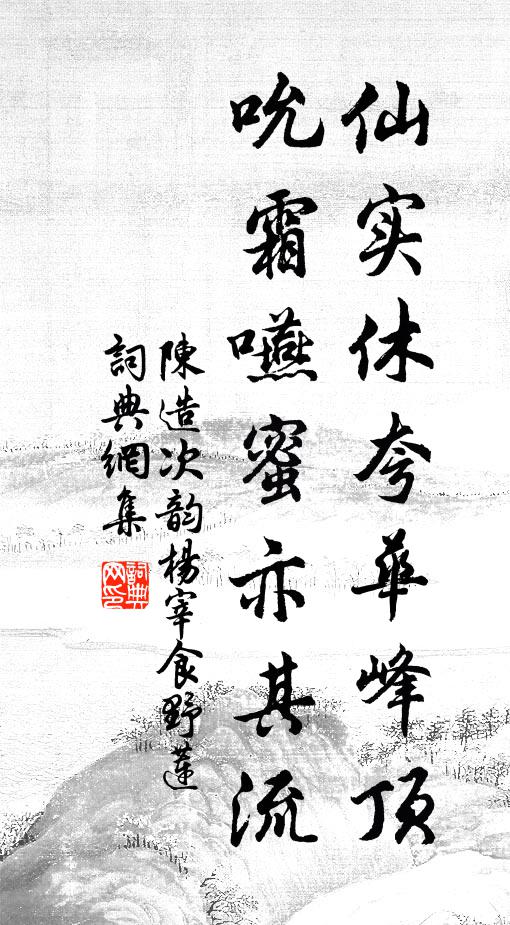 仙实休夸华峰顶
吮霜嚥蜜亦其流
陳造次韵楊宰食野蓮
詞典網集
詞典网印